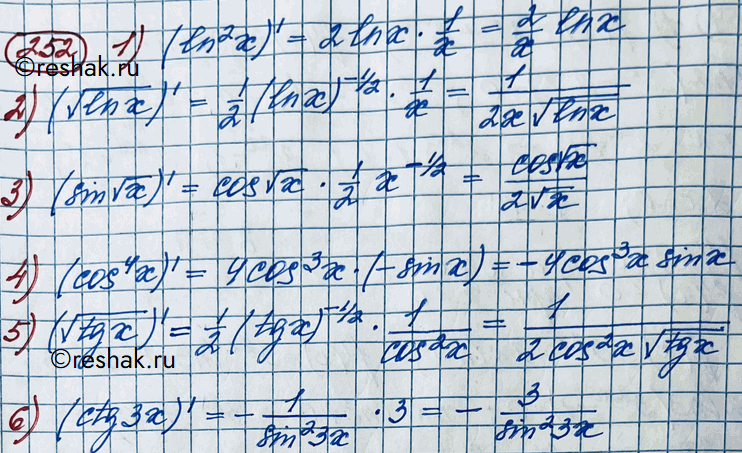 252 1) (ln²x)' = 2 lnx · 1/x = 2/x lnx
©reshak.ru
2) (√lnx)' = 1/2 (lnx)^(-1/2) · 1/x = 1/(2x√lnx)
3) (sin√x)' = cos√x · 1/2 x^(-1/2) = cos√x/(2√x)
4) (cos⁴x)' = 4cos³x · (-sinx) = -4cos³x sinx
5) (√tgx)' = 1/2 (tgx)^(-1/2) · 1/cos²x = 1/(2cos²x√tgx)
©reshak.ru
6) (ctg3x)' = - 1/sin²3x · 3 = - 3/sin²3x